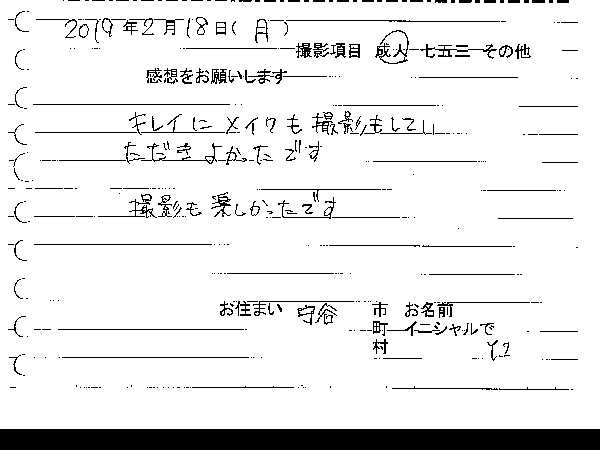 2019年2月18日(月)
撮影項目 成人 七五三 その他
感想をお願いします
キレイに メイクも 撮影もしてい
ただき よかったです
撮影も 楽しかったです
お住まい 守谷 市 お名前
町 イニシャルで
村